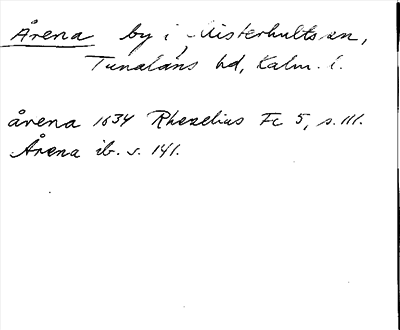 Årena by i Misterhults sn,
Tunaläns hd, Kalm. l.
årena 1634 Rhezelius Fc 5, s. 111.
Årena ib. s. 141.